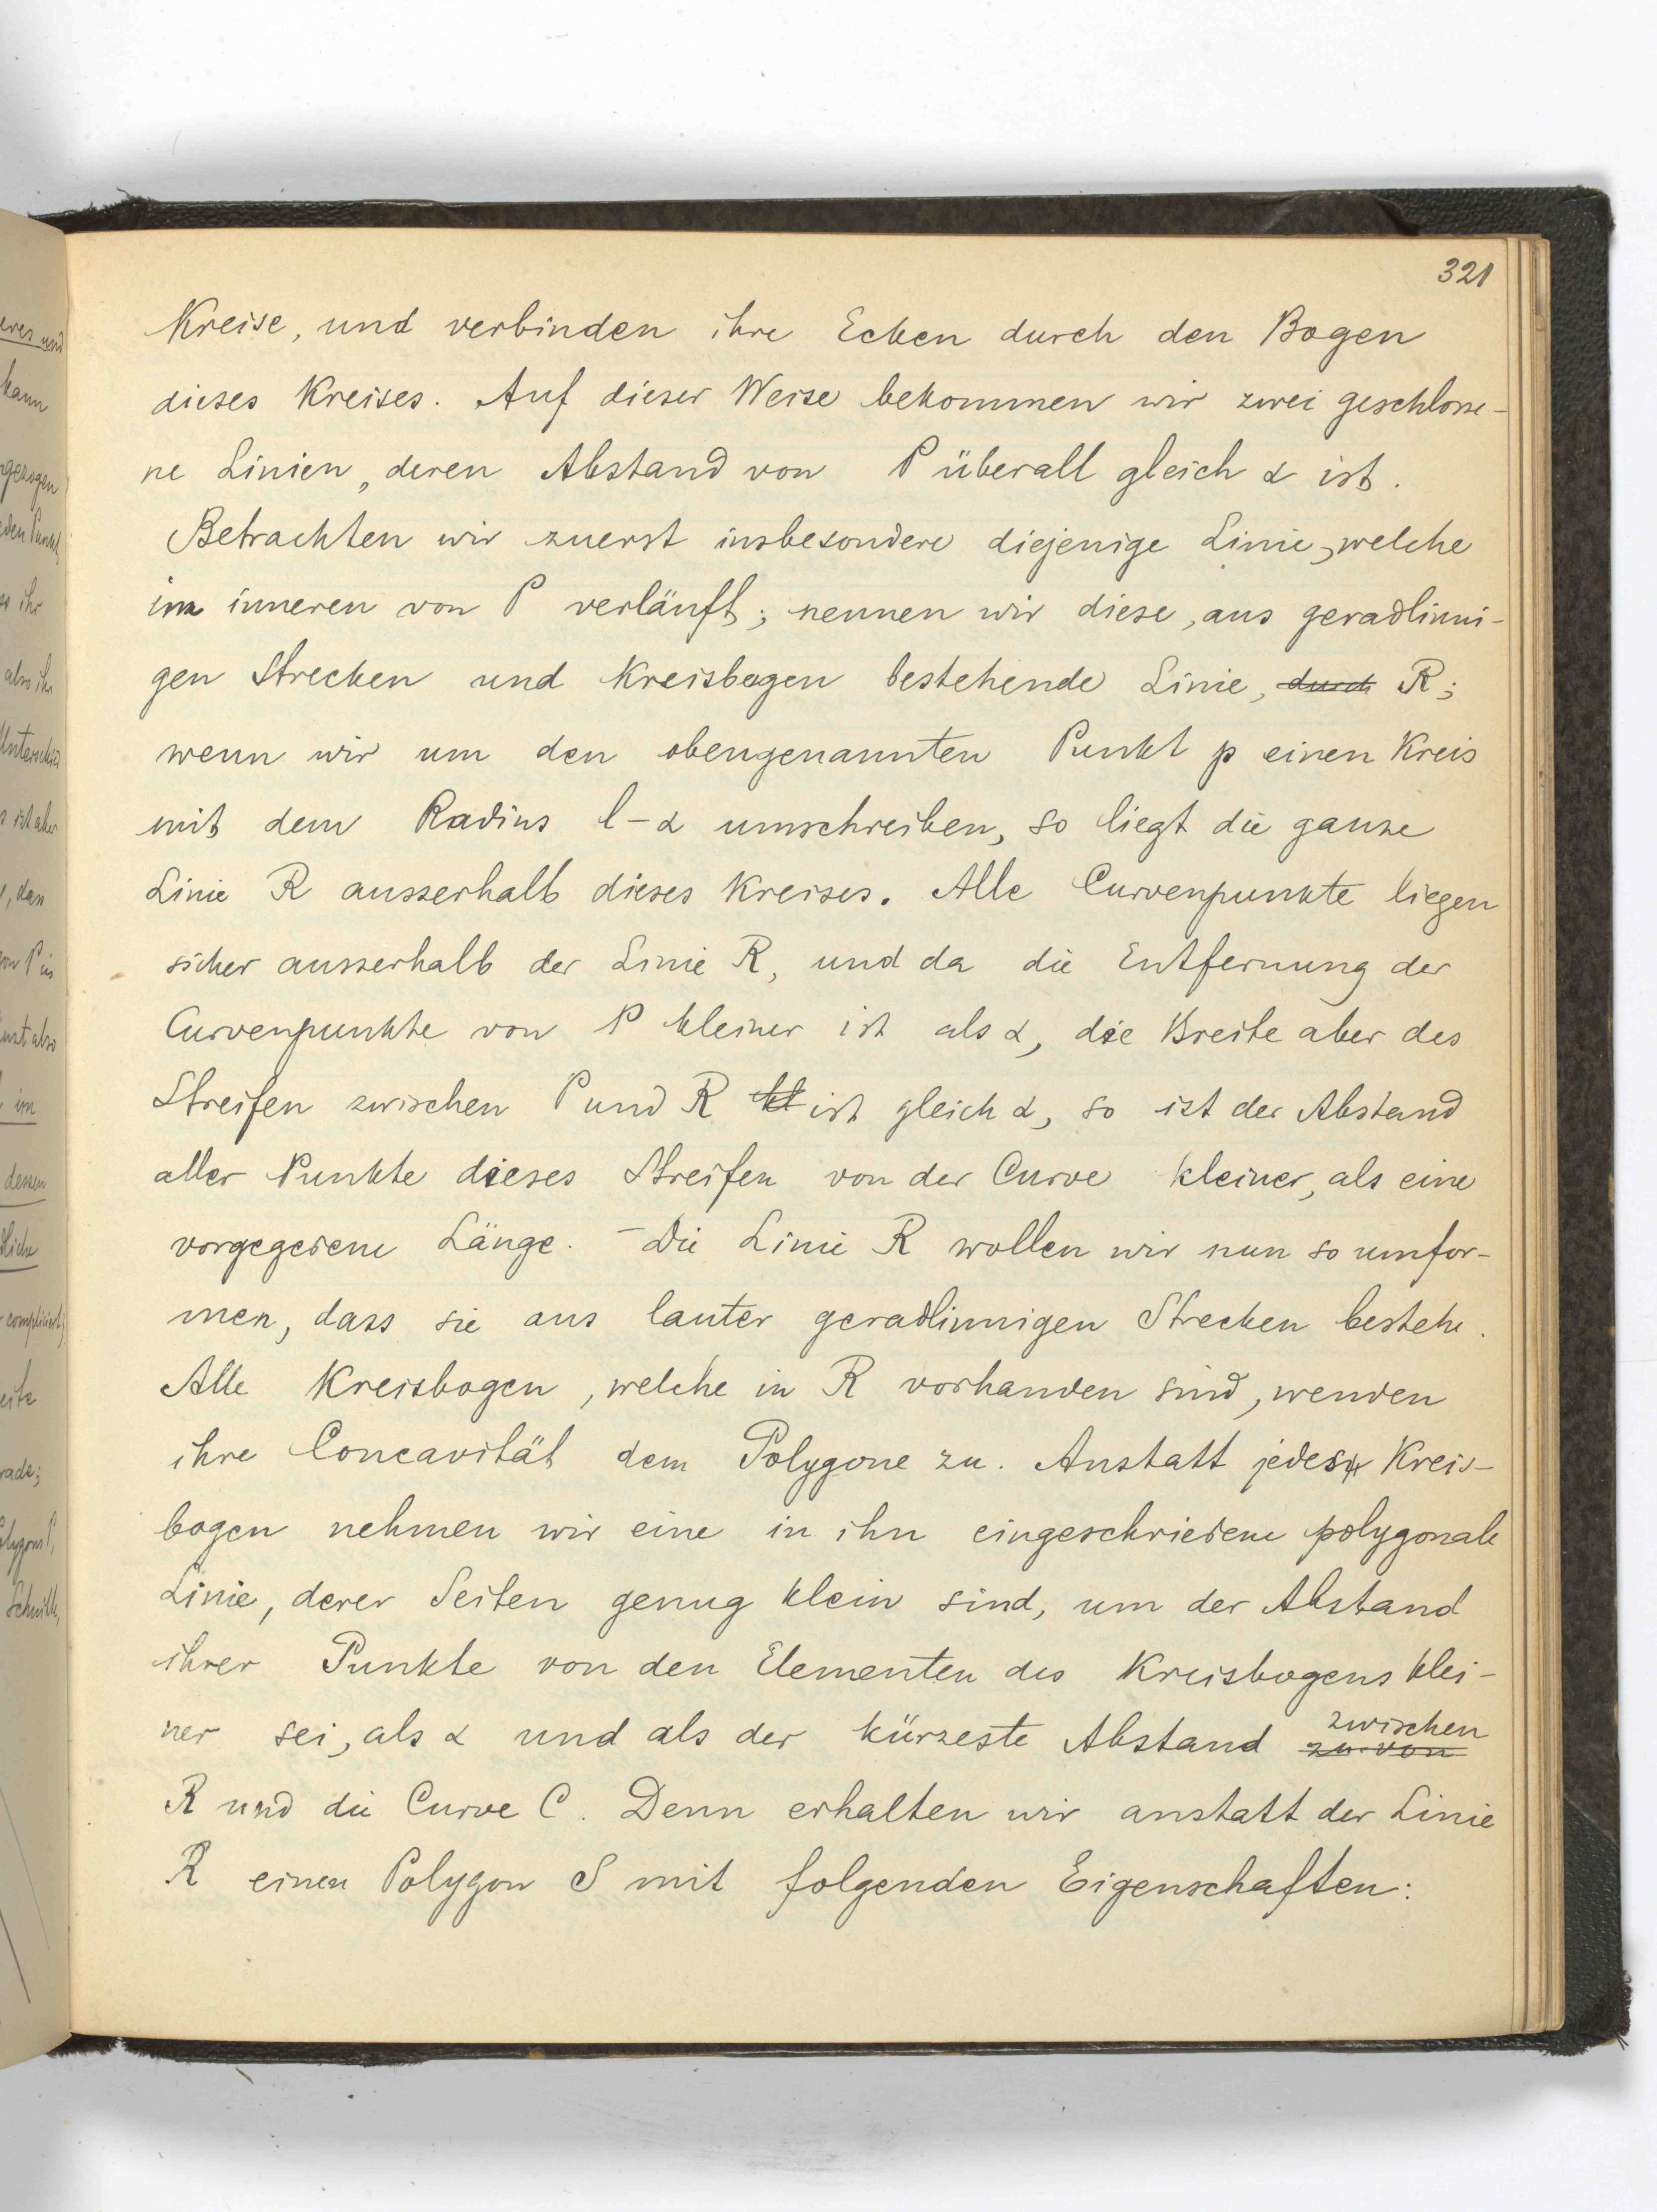 321
Kreise, und verbinden ihre Ecken durch den Bogen
dieses Kreises. Auf dieser Weise bekommen wir zwei geschlosse-
ne Linien, deren Abstand von P überall gleich α ist.
Betrachten wir zuerst insbesondere diejenige Linie, welche
im inneren von P verläuft; nennen wir diese, aus geradlinni-
gen Strecken und Kreisbogen bestehende Linie, durch R;
wenn wir um den obengenannten Punkt p einen Kreis
mit dem Radius l-α umschreiben, so liegt die ganze
Linie R ausserhalb dieses Kreises. Alle Curvenpunkte liegen
sicher ausserhalb der Linie R, und da die Entfernung der
Curvenpunkte von P kleiner ist als α, die Breite aber des
Streifen zwischen P und R kl ist gleich α, so ist der Abstand
aller Punkte dieses Streifen von der Curve kleiner, als eine
vorgegebene Länge. – Die Linie R wollen wir nun so umfor-
men, dass sie aus lauter geradlinnigen Strecken bestehe.
Alle Kreisbogen, welche in R vorhanden sind, wenden
ihre Concavität dem Polygone zu. Anstatt jedes Kreis-
bogen nehmen wir eine in ihn eingeschriebene polygonale
Linie, derer Seiten genug klein sind, um der Abstand
ihrer Punkte von den Elementen des Kreisbogens klei-
ner sei, als α und als der kürzeste Abstand zu von zwischen
R und die Curve C. Denn erhalten wir anstatt der Linie
R einen Polygon S mit folgenden Eigenschaften: